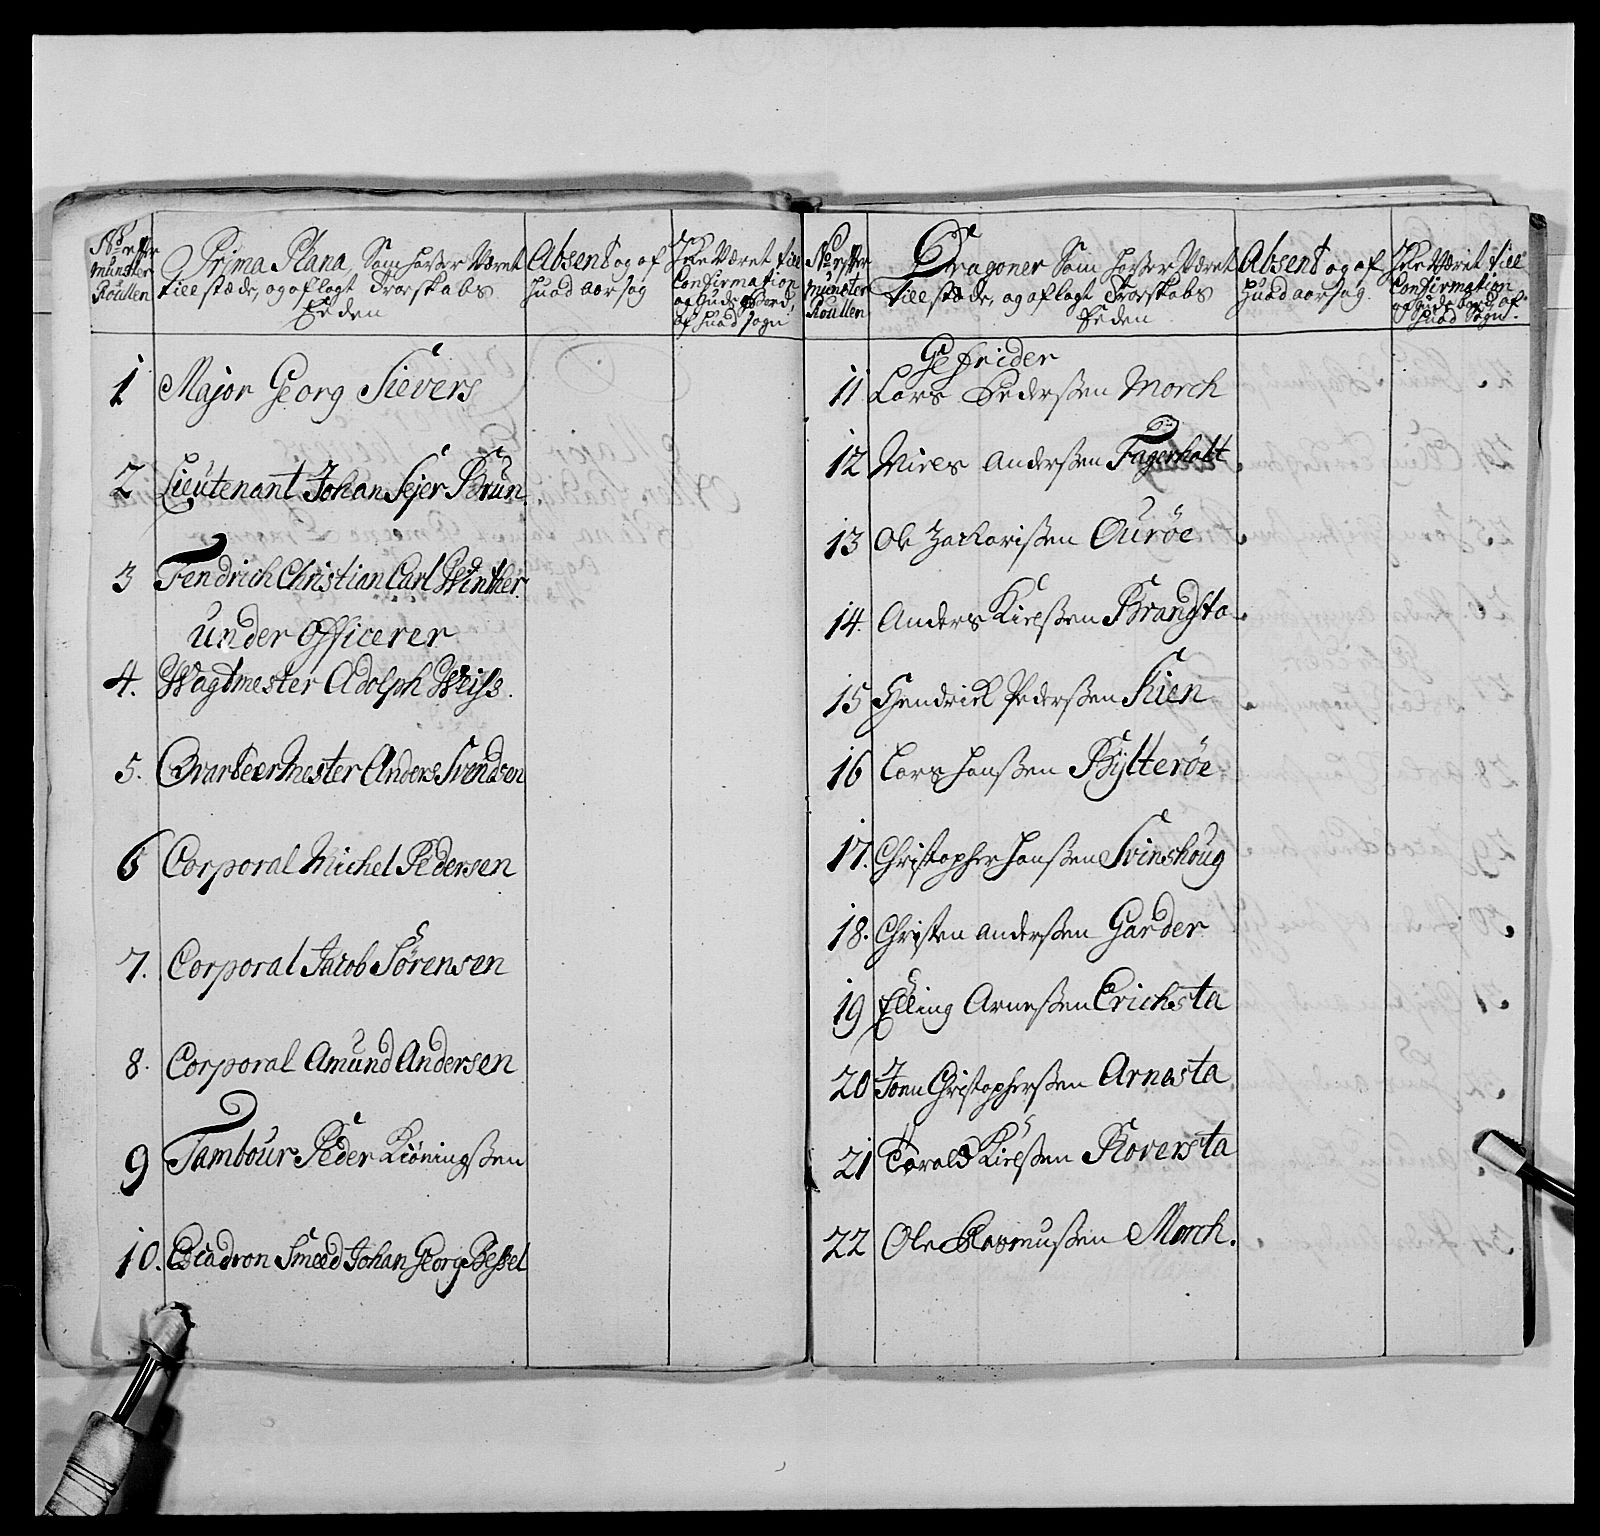 No efter
Munster
Roullen
Prima Plana, Som hafver Været
till stæde, og aflagt Troeskabs
Eeden
Absent og af
huad aarsag
Icke Været till
Confirmation
og Guds Bord,
af huad sogn
1 Major Georg Sievers
2 Lieutenant Johan Sejer Brun.
3 Fendrich Christian Carl Winther.
under Officerer
4. Wagtmester Adolph Weiss.
5. Qvarteermester Anders Svendsen
6 Corporal Michel Pedersen
7. Corporal Jacob Sørensen
8. Corporal Amund Andersen
9 Tambour Peder Kiøningssen
10. Escadron Smeed Johan Georg Bessel
No efter
Munster
Roullen
Dragoner Som hafver Været
till stæde, og aflagt Troeskabs
Eeden
Absent og af
huad aarsag.
Icke Været till
Confirmation
og Guds bord, af
huad Sogn.
Gefrider
11 Lars Pederssen Morch
12 Niels Anderssen Fagerholt
13 Ole Zachrissen Ourøe
14. Anders Kielssen Brandsta
15 Hendrick Pederssen Kien
16 Lars Hanssen Bytterøe
17. Christopher Hanssen Svinshoug
18. Christen Anderssen Garder
19 Elling Arnessen Erichsta
20 Joen Christopherssen Arnesta
21 Torals Kielssen Roversta
22 Ole Rasmussen Morch.